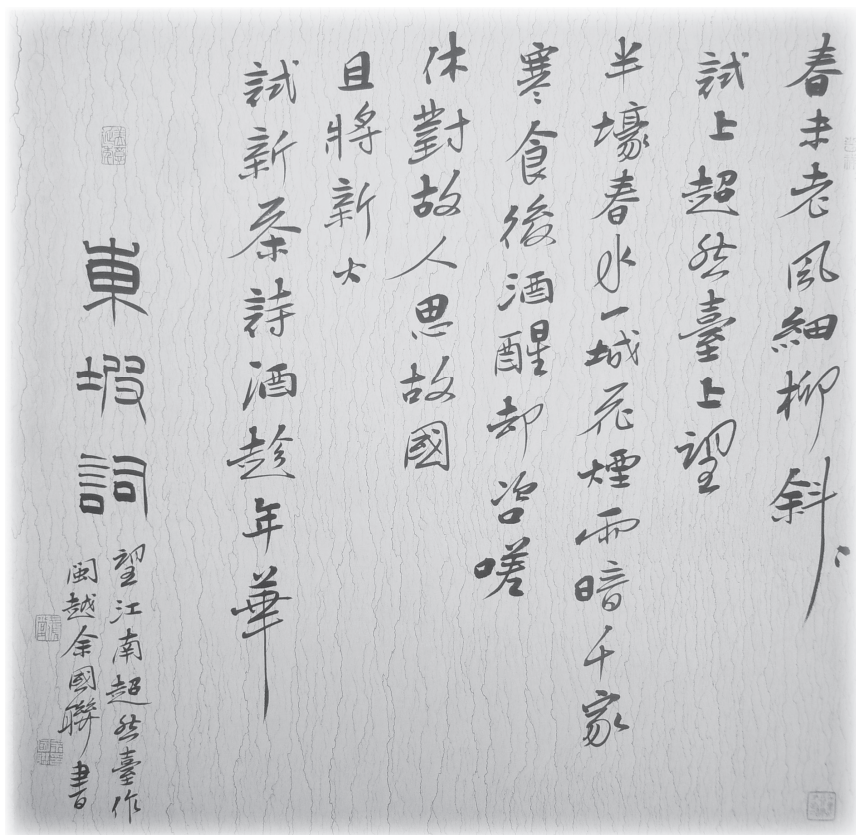 春未老風細柳斜〻
試上超然臺上望
半壕春水一城花煙雨暗千家
寒食後酒醒却咨嗟
休對故人思故國
且將新火
試新茶詩酒趁年華
東坡詞
望江南超然臺作
閩越余國聯書